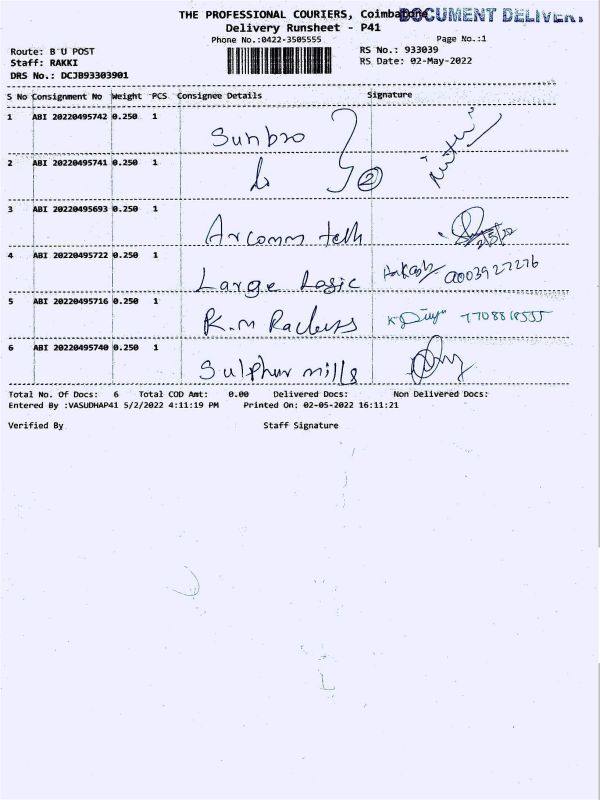 THE PROFESSIONAL COURIERS, Coimbatore
DOCUMENT DELIVERY
Delivery Runsheet - P41
Phone No.:0422-3505555
Page No.:1
Route: B U POST
RS No.: 933039
Staff: RAKKI
RS Date: 02-May-2022
DRS No.: DCJB93303901
S No Consignment No Weight PCS Consignee Details Signature
1 ABI 20220495742 0.250 1 Sunbro
2 ABI 20220495741 0.250 1 2
3 ABI 20220495693 0.250 1 Arcomm
4 ABI 20220495722 0.250 1 Large Logic Aakash
5 ABI 20220495716 0.250 1 K.M
6 ABI 20220495740 0.250 1 Sulphur mills
Total No. Of Docs: 6 Total COD Amt: 0.00 Delivered Docs: Non Delivered Docs:
Entered By :VASUDHAP41 5/2/2022 4:11:19 PM Printed On: 02-05-2022 16:11:21
Verified By Staff Signature